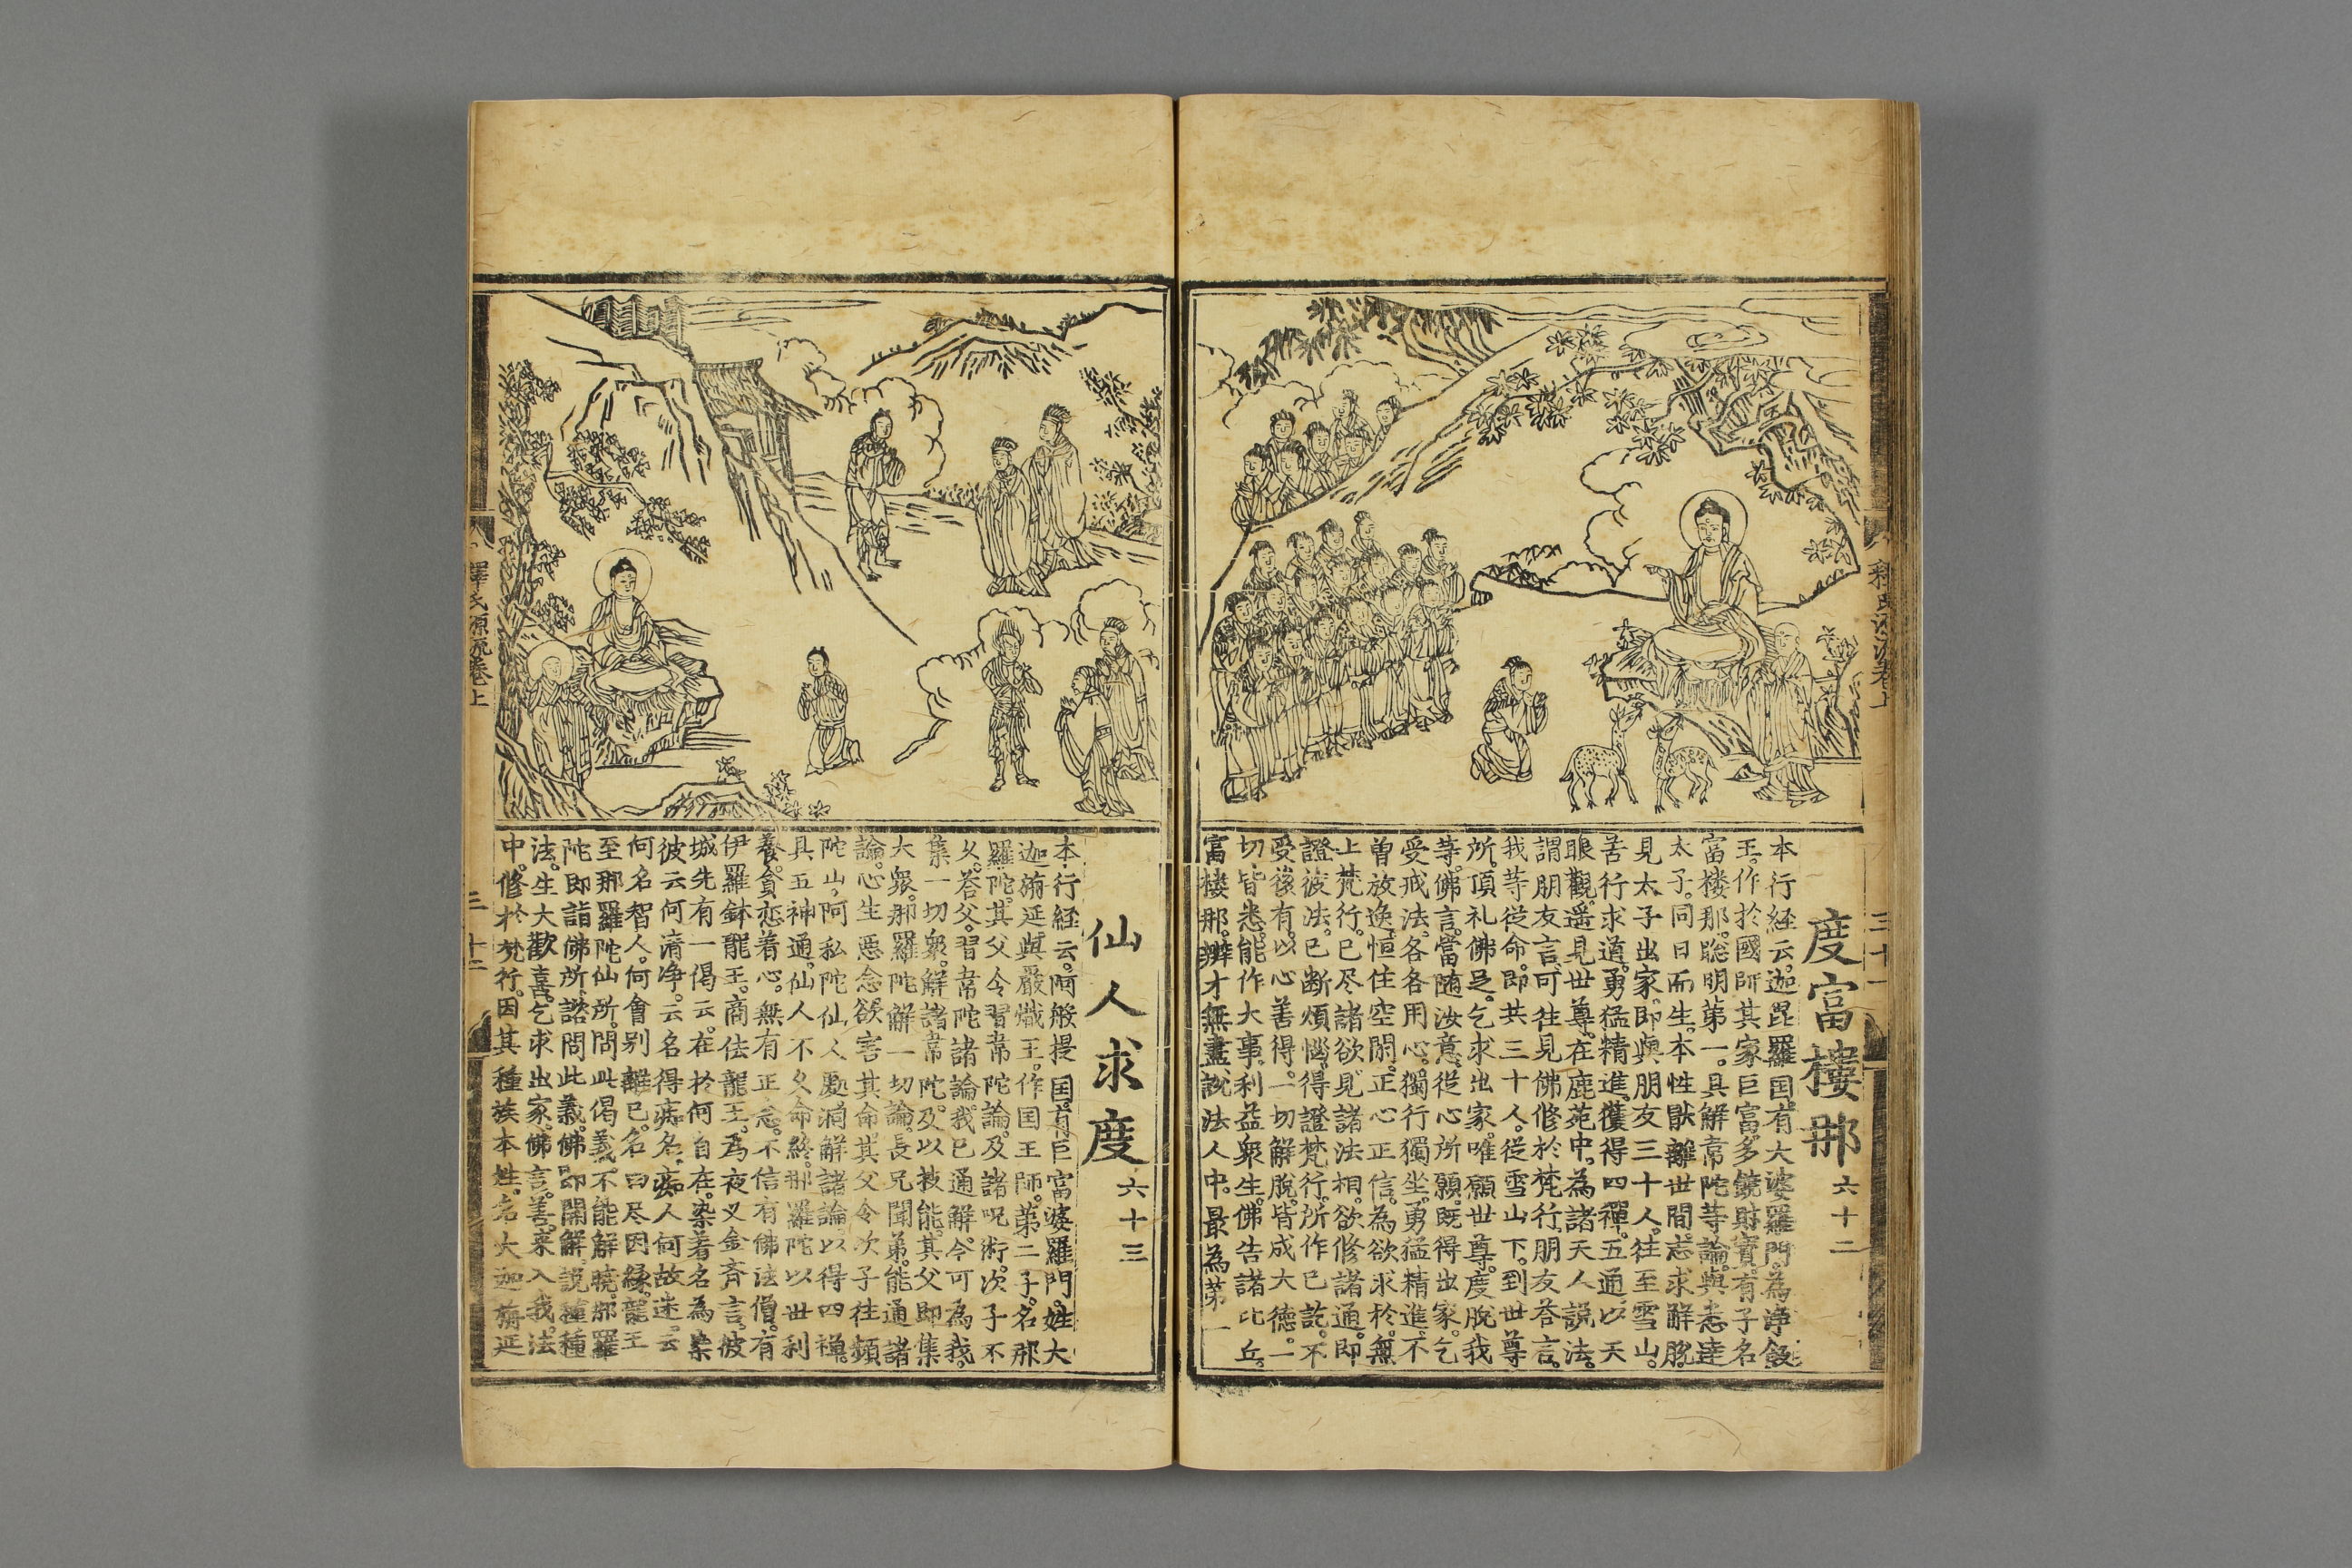 度富樓那 六十二
本行経云。迦毘羅国。有大婆羅門。為淨飯
王。作於國師其家巨富。多饒財寶。有子名
富楼那。聡明第一。具解韋陀等論。與悉達
太子。同日而生。本性猒離世間。志求解脫。
見太子出家即與朋友三十人。往至雪山。
苦行求道。勇猛精進。獲得四禪。五通以天
眼觀。遥見世尊。在鹿苑中。為諸天人説法。
謂朋友言。可往見佛修於梵行。朋友荅言。
我等從命。即共三十人。從雪山下。到世尊
所。頂礼佛足。乞求出家。唯願世尊。度脫我
等。佛言。當随汝意。從心所願。既得出家。乞
受戒法。各各用心。獨行獨坐。勇猛精進。不
曽放逸。恒住空閑。正心正信。為欲求於。無
上梵行。已尽諸欲。見諸法相。欲修諸通。即
證彼法。已断煩惱。得證梵行。所作已訖。不
受後有。以心善得。一切解脫。皆成大德。一
切皆悉。能作大事。利益衆生。佛告諸比丘。
富楼那。辨才無盡。説法人中。最為第一
仙人求度 六十三
本行経云。阿般提国。有巨富婆羅門。姓大
迦旃延。與嚴熾王。作国王師。第二子。名那
羅陀。其父令習韋陀論。及諸呪術。次子不
久。荅父。習韋陀諸論。我已通解。今可為我。
集一切衆。解諸韋陀。及以技能。其父即集
大衆。那羅陀解一切論。長兄聞弟。能通諸
論。心生惡念。欲害其命。其父令次子往頻
陀山。阿私陀仙人處。漸解諸論。以得四禅。
具五神通。仙人不久命終。那羅陀以世利
養。貪恋着心。無有正念。不信有佛法僧。有
伊羅鉢龍王。商佉龍王。為夜叉金斉言。彼
城先有一偈云。在於何自在。染着名為染
彼云何清净。云名得癡名。癡人何故迷。云
何名智人。何會别離已。名曰尽因緣。龍王
至那羅陀仙所。問此偈義。不能解曉。那羅
陀即詣佛所。諮問此義。佛即開解。説種種
法。生大歡喜。乞求出家。佛言。善。来入我。法
中。修於梵行。因其種族本姓。名大迦旃延
釋氏源流卷上
三十二